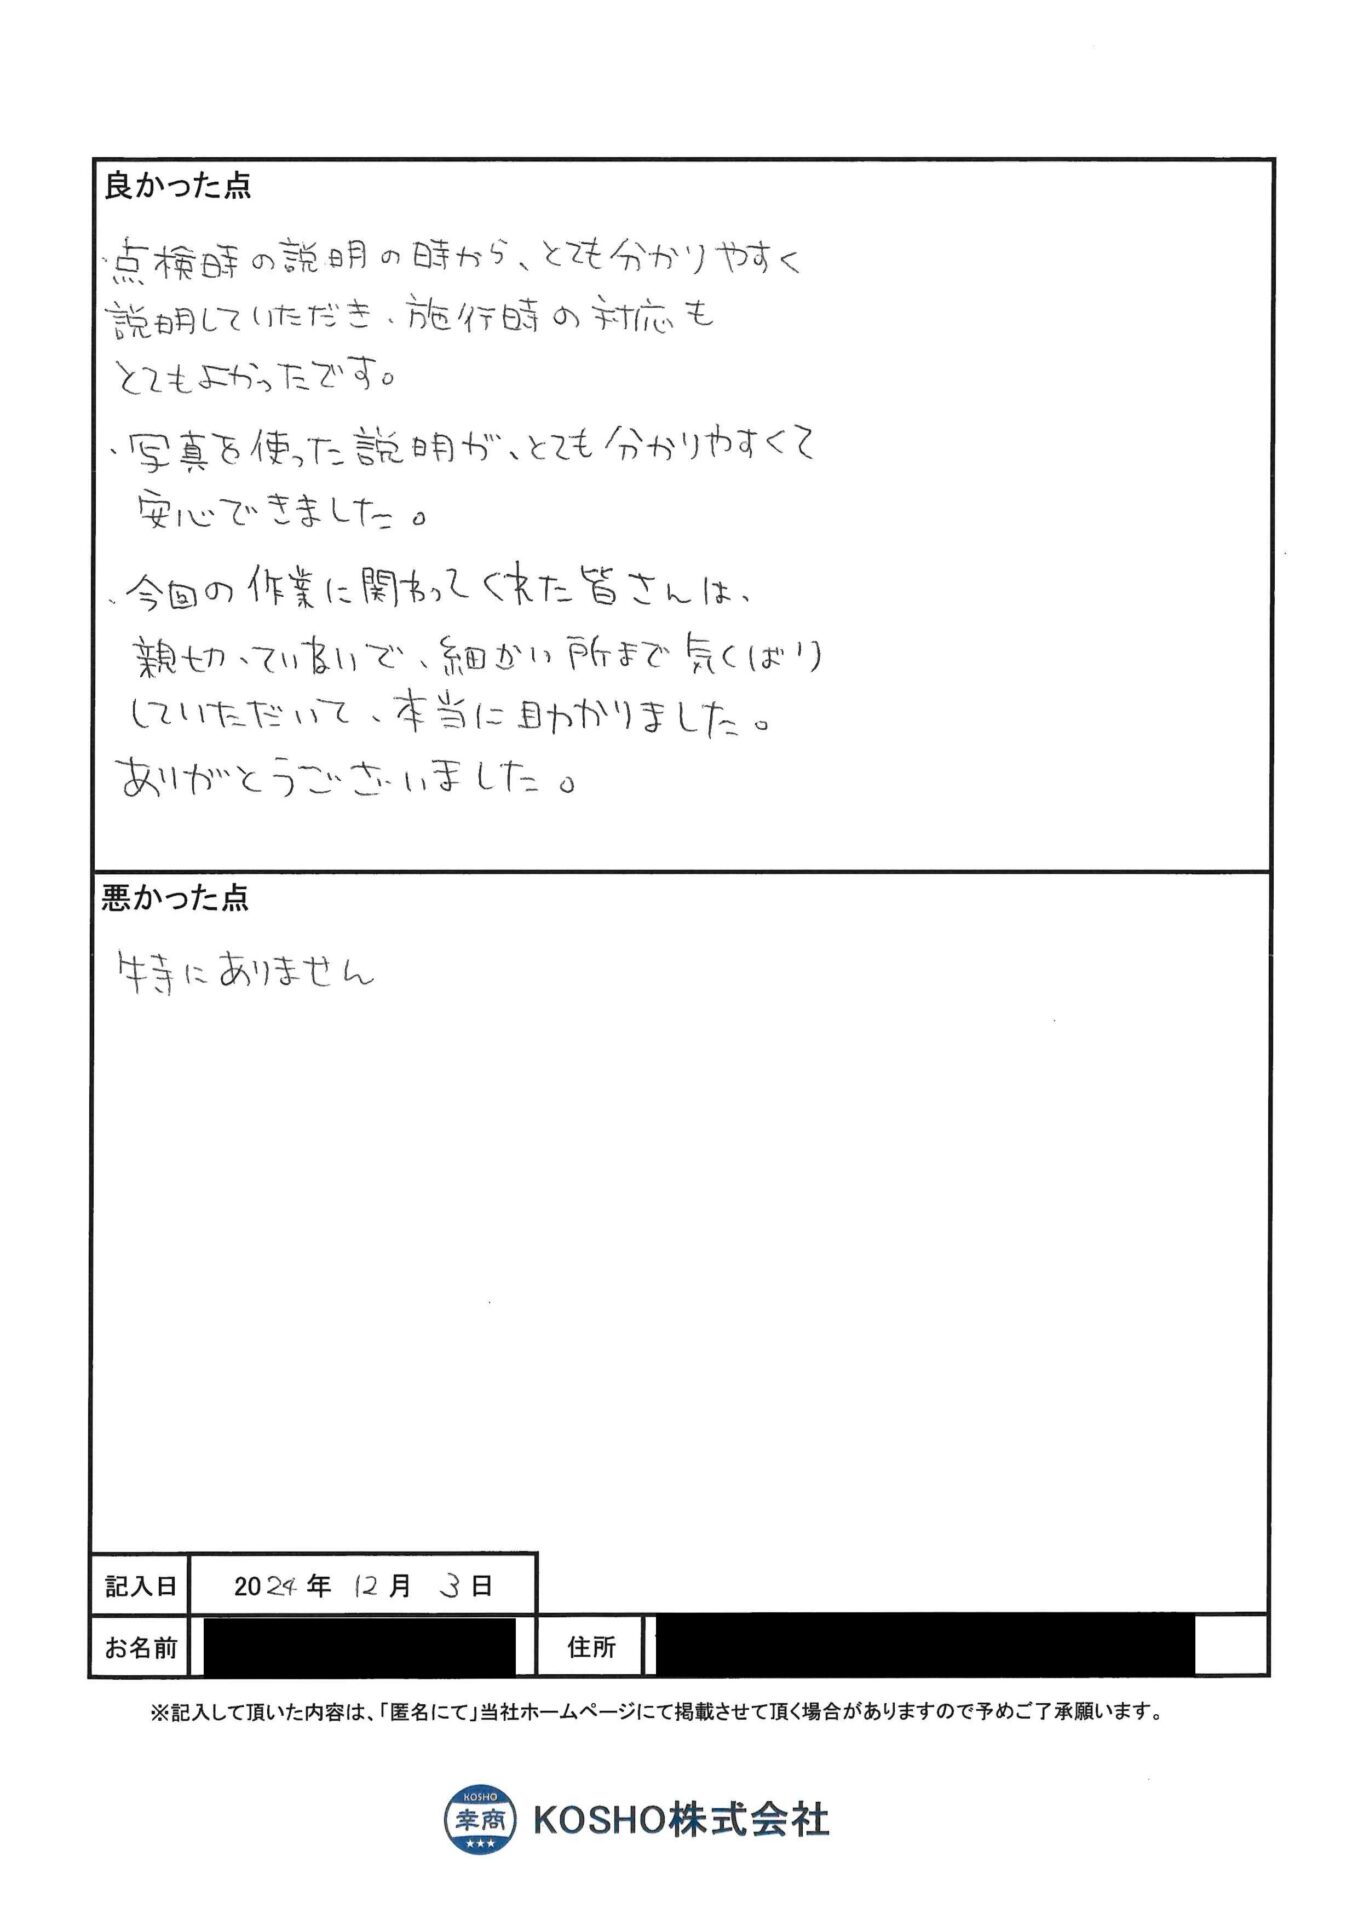 良かった点
・点検時の説明の時から、とても分かりやすく
説明していただき、施行時の対応も
とてもよかったです。
・写真を使った説明が、とても分かりやすくて
安心できました。
・今回の作業に関わってくれた皆さんは、
親切、ていねいで、細かい所まで気くばり
していただいて、本当に助かりました。
ありがとうございました。
悪かった点
特にありません
記入日 2024年 12月 3日
お名前 住所
※記入して頂いた内容は、「匿名にて」当社ホームページにて掲載させて頂く場合がありますので予めご了承願います。
KOSHO
幸商
KOSHO株式会社